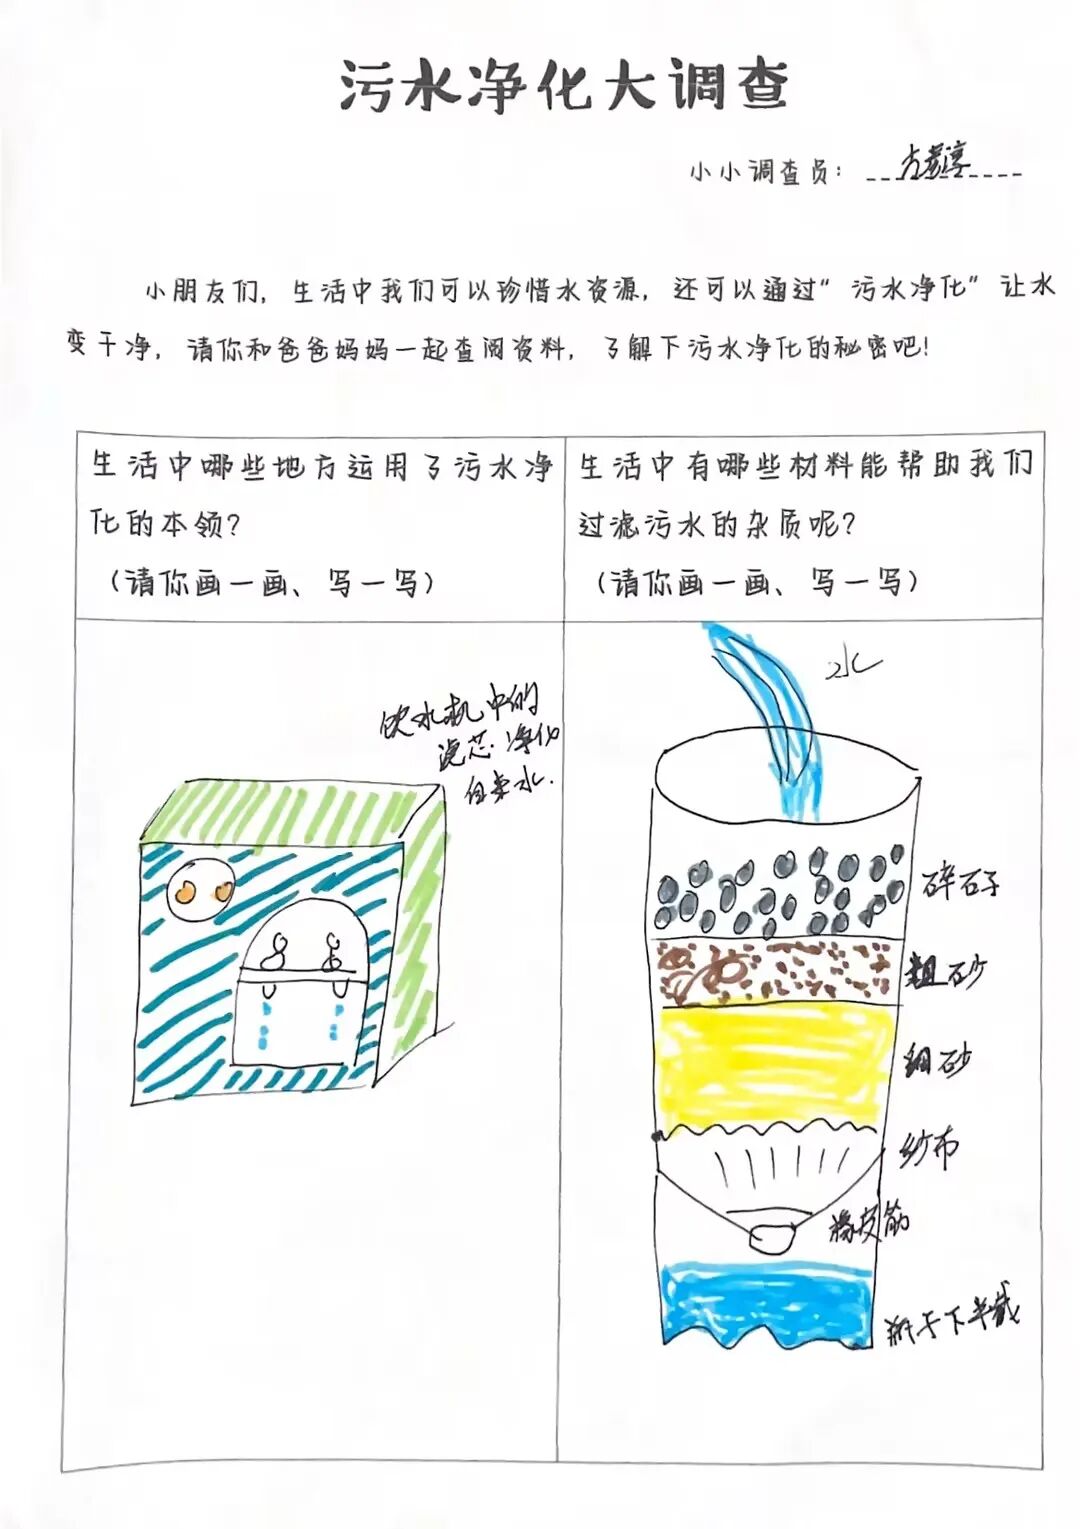 污水净化大调查
小小调查员：
小朋友们，生活中我们可以珍惜水资源，还可以通过“污水净化”让水
变干净，请你和爸爸妈妈一起查阅资料，了解下污水净化的秘密吧！
生活中哪些地方运用了污水净
化的本领？
（请你画一画、写一写）
生活中有哪些材料能帮助我们
过滤污水的杂质呢？
（请你画一画、写一写）
饮水机中的
滤芯净化
自来水.
水
碎石子
粗砂
细砂
纱布
橡皮筋
瓶子下半截